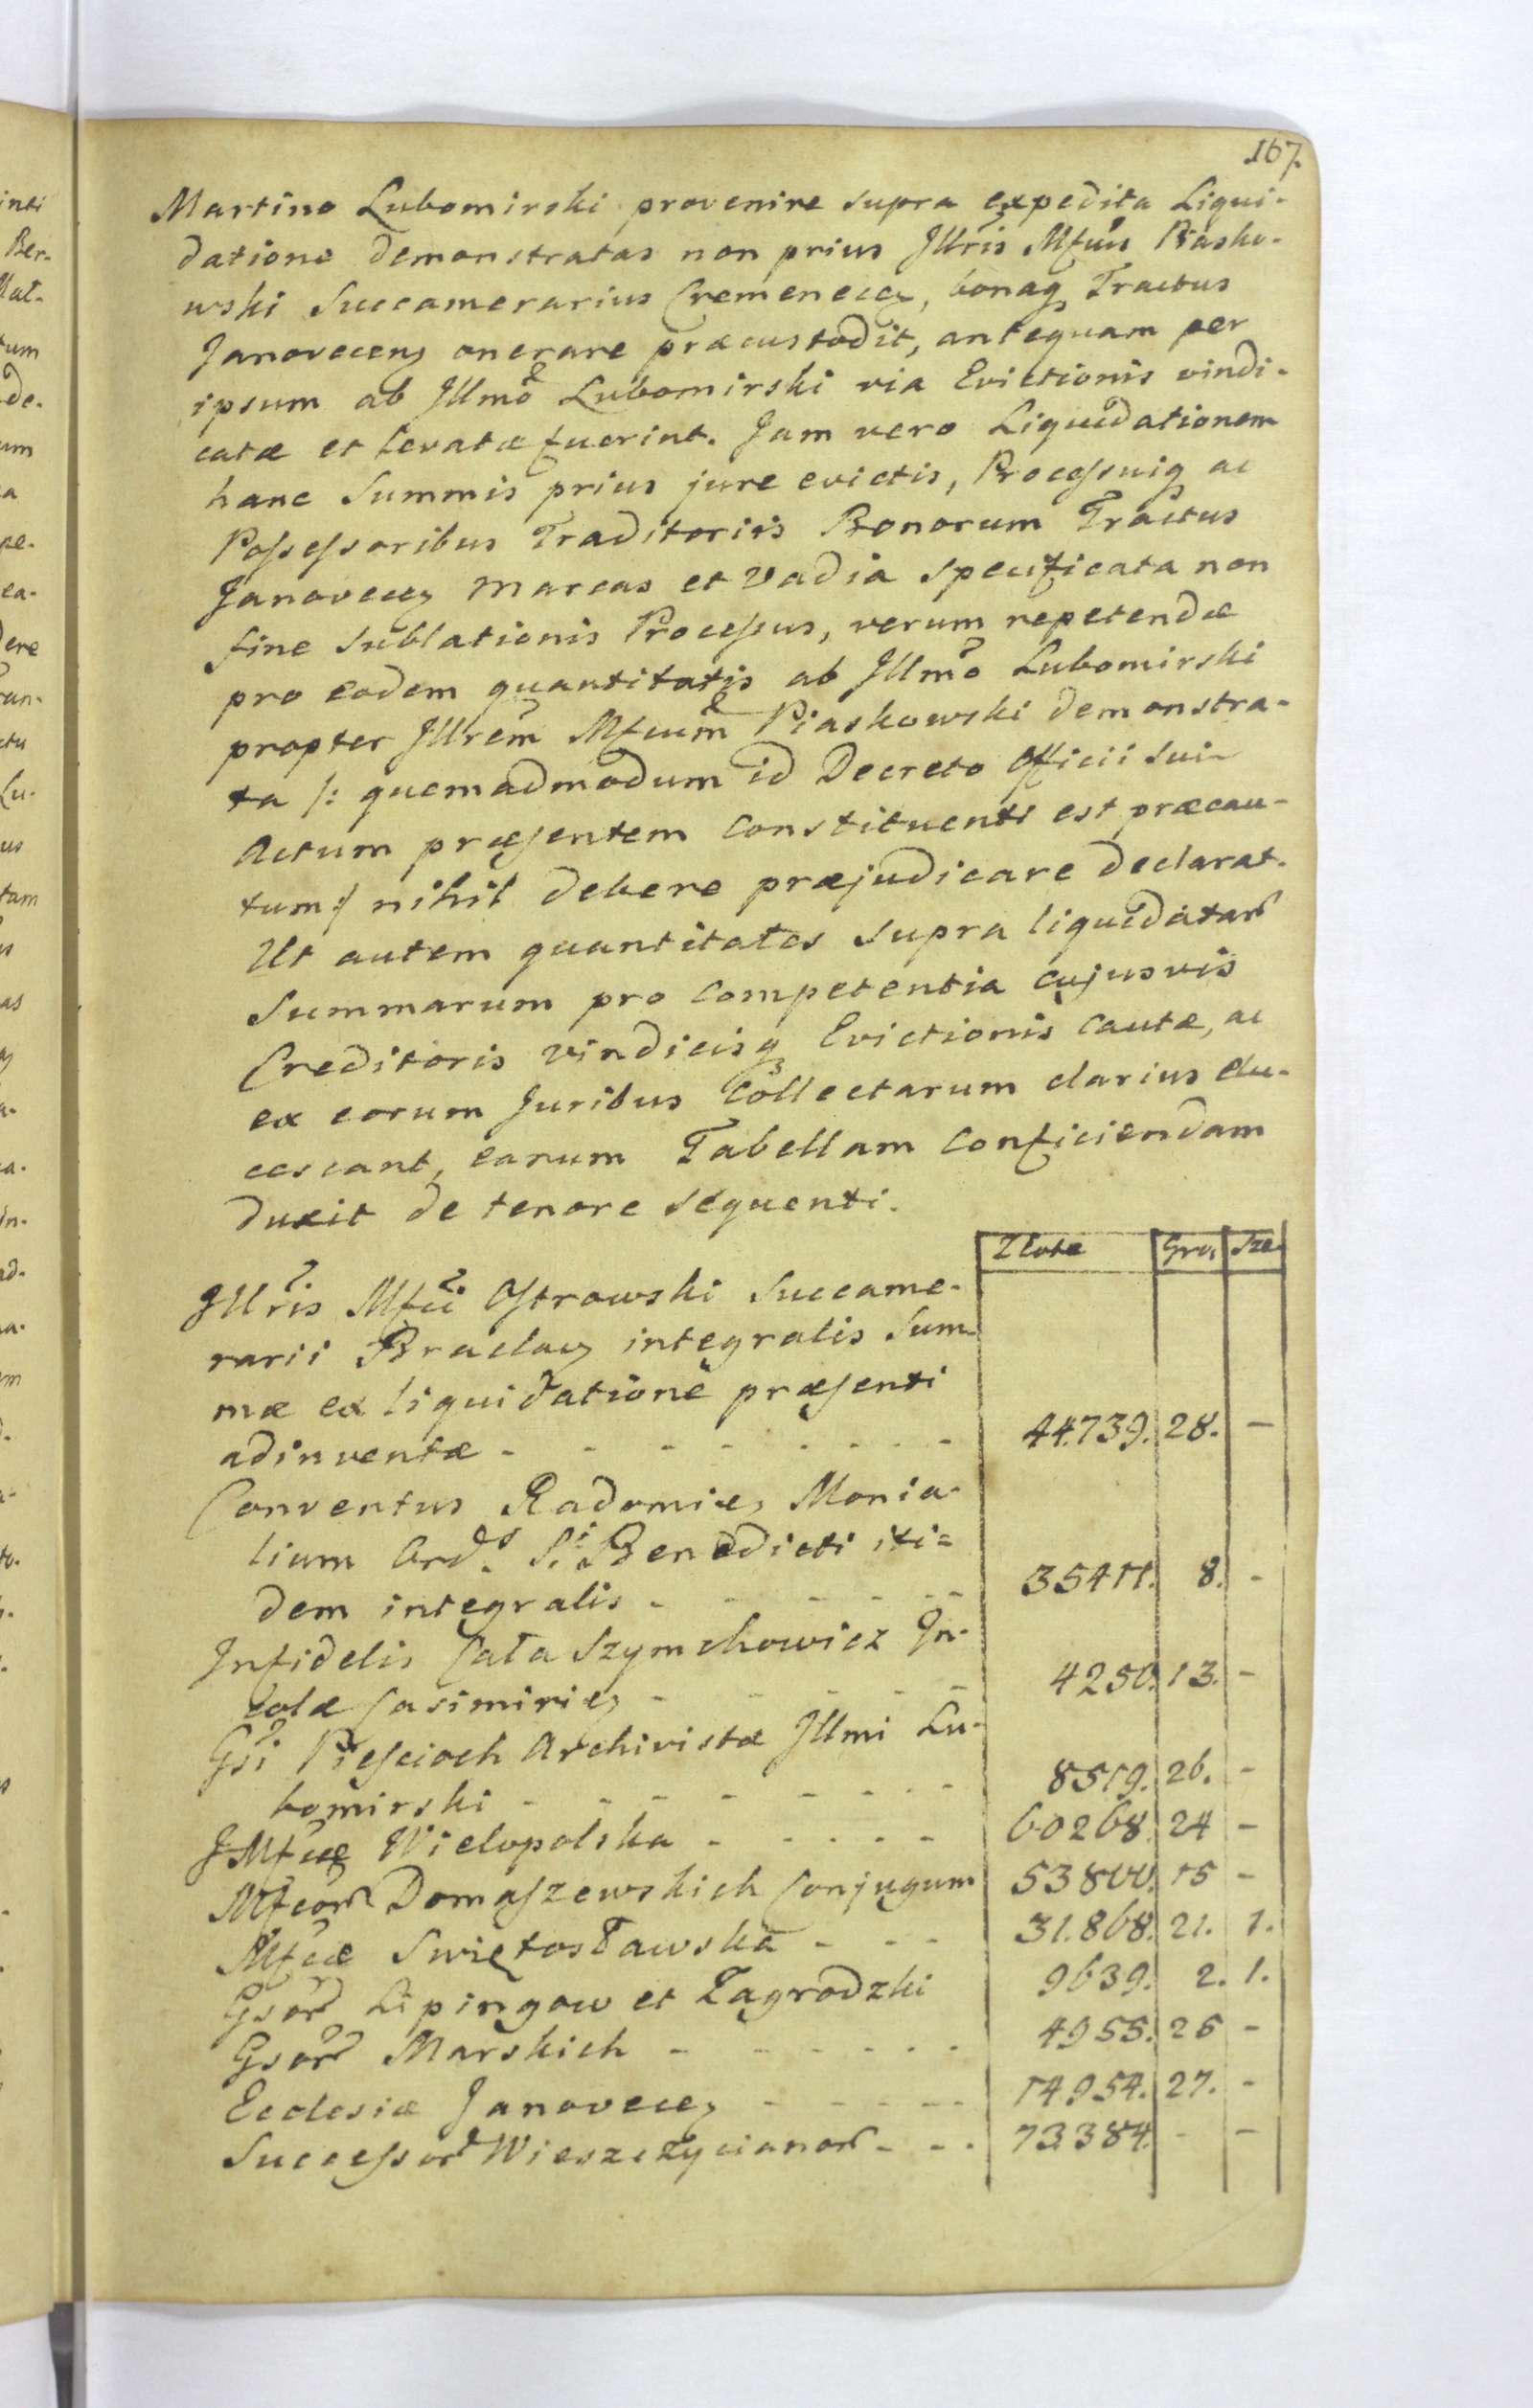 167.
Martino Lubomirski provenire supra expedita Liqui-
datione demonstratas non prius Jllris Mfcus Piasko-
wski Succamerarius Cremenecen, bonaq Tractus
Janovecens onerare præcustodit, antequam per
ipsum ab Jllmo Lubomirski via Evictionis vindi-
catæ et levatæ fuerint. Jam vero Liquidationem
hanc Summis prius jure evictis, Processuiq ac
Possessoribus Traditoriis Bonorum Tractus
Janovecen Marcas et Vadia specificata non
fine sublationis Processus, verum repetendæ
pro eadem quantitatis ab Jllmo Lubomirski
propter Jllrem Mfcum Piaskowski demonstra-
ta /: quemadmodum id Decreto Officii sui
Actum præsentem Constituenti est præcau-
tum :/ nihil debere præjudicare declarat.
Ut autem quantitates supra liquidatar
Summarum pro Competentia cujusvis
Creditoris vindiciisq Evictionis cautæ, ac
ex eorum Juribus Collectarum clarius elu-
cescant, earum Tabellam Conficiendam
duxit de tenore sequenti.
Zlotæ Gro. Sze.
Jllris Mfci Ostrowski Succame-
rarii Braclav integralis Sum-
mæ ex liquidatione præsenti
adinventæ - - - - - - - 44.739. 28. -
Conventus Radomien Monia-
lium Ord. S. Benedicti iti-
dem integralis - - - - - 35411. 8. -
Jnfidelis Cała Szymchowicz Jn-
colæ Casimirien - - - - - 4250. 13. -
Gsi Piescioch Archivistæ Jllmi Lu-
bomirski - - - - - - - 8519. 26. -
JMfcæ Wielopolska - - - - - 60268. 24 -
Mfcor Domaszewskich Conjugum 53800. 15 -
Mfcæ Swiętosławska - - - 31.868. 21. 1.
Gsor Lipingow et Zagrodzki 9639. 2. 1.
Gsor Marskich - - - - - - 4955. 25 -
Ecclesiæ Janovecen - - - - - 14954. 27. -
Successor Wieszczycianor - - . 73384. - -